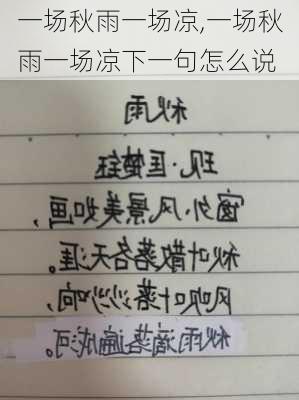 一场秋雨一场凉,一场秋
雨一场凉下一句怎么说
秋雨
现·匡楚钰
窗外风景美如画，
秋叶散落各天涯。
风吹叶落沙沙响，
秋雨滴落遍成河。